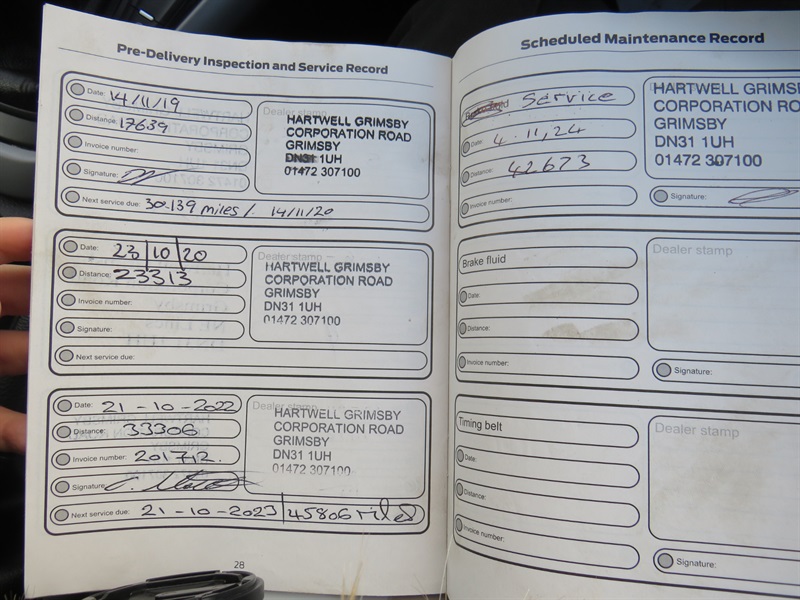 Pre-Delivery Inspection and Service Record
Date: 14/11/19
Distance: 17639
Invoice number:
Signature:
Dealer stamp
HARTWELL GRIMSBY
CORPORATION ROAD
GRIMSBY
DN31 1UH
01472 307100
Next service due: 30.139 miles / 14/11/20
Date: 23/10/20
Distance: 23313
Invoice number:
Signature:
Dealer stamp
HARTWELL GRIMSBY
CORPORATION ROAD
GRIMSBY
DN31 1UH
01472 307100
Next service due:
Date: 21-10-2022
Distance: 33306
Invoice number: 201712.
Signature:
Dealer stamp
HARTWELL GRIMSBY
CORPORATION ROAD
GRIMSBY
DN31 1UH
01472 307100
Next service due: 21-10-2023 / 45806 miles
28
Scheduled Maintenance Record
Service
Date: 4.11,24
Distance: 42673
Invoice number:
HARTWELL GRIMSB
CORPORATION RO
GRIMSBY
DN31 1UH
01472 307100
Signature:
Brake fluid
Date:
Distance:
Invoice number:
Dealer stamp
Signature:
Timing belt
Date:
Distance:
Invoice number:
Dealer stamp
Signature: